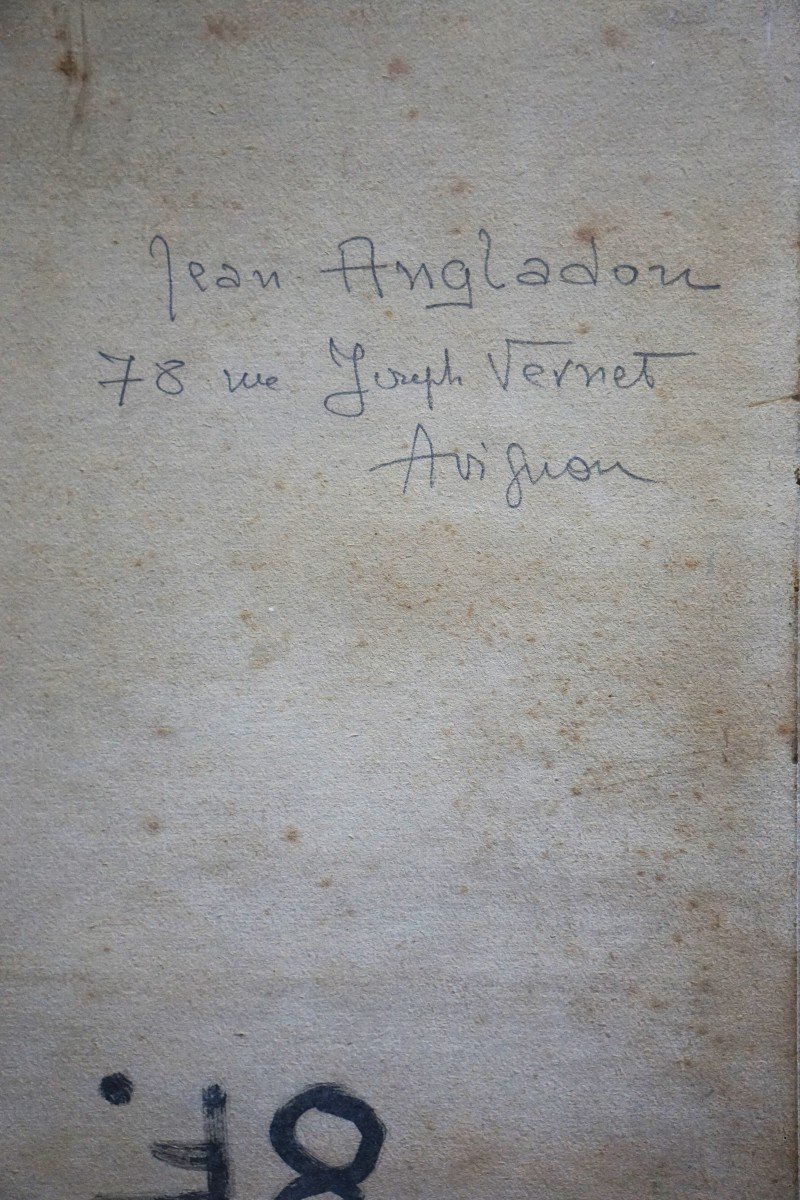 Jean Angladon
78 rue Joseph Vernet
Avignon